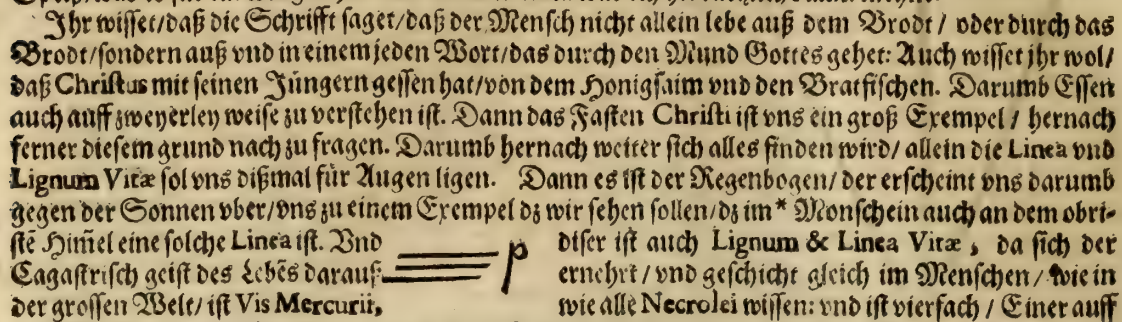 Ihr wisset/daß die Schrifft saget/daß der Mensch nicht allein lebe auß dem Brodt / oder durch das
Brodt/sondern auß vnd in einem jeden Wort/das durch den Mund Gottes gehet: Auch wisset jhr wol/
daß Christus mit seinen Jüngern gessen hat/von dem Honigsaim vnd den Bratfischen. Darumb Essen
auch auff zweyerley weise zu verstehen ist. Dann das Fasten Christi ist vns ein groß Exempel / hernach
ferner diesem grund nach zu fragen. Darumb hernach weiter sich alles finden wird/ allein die Linea vnd
Lignum Vitæ sol vns dißmal für Augen ligen. Dann es ist der Regenbogen/ der erscheint vns darumb
gegen der Sonnen vber/vns zu einem Exempel dz wir sehen sollen/dz im* Monschein auch an dem obri-
stē Him̃el eine solche Linea ist. Vnd
Cagastrisch geist des Lebēs darauß
der grossen Welt/ ist Vis Mercurii,
p
diser ist auch Lignum & Linea Vitæ, da sich der
ernehrt / vnd geschicht gleich im Menschen / wie in
wie alle Necrolei wissen: vnd ist vierfach / Einer auff